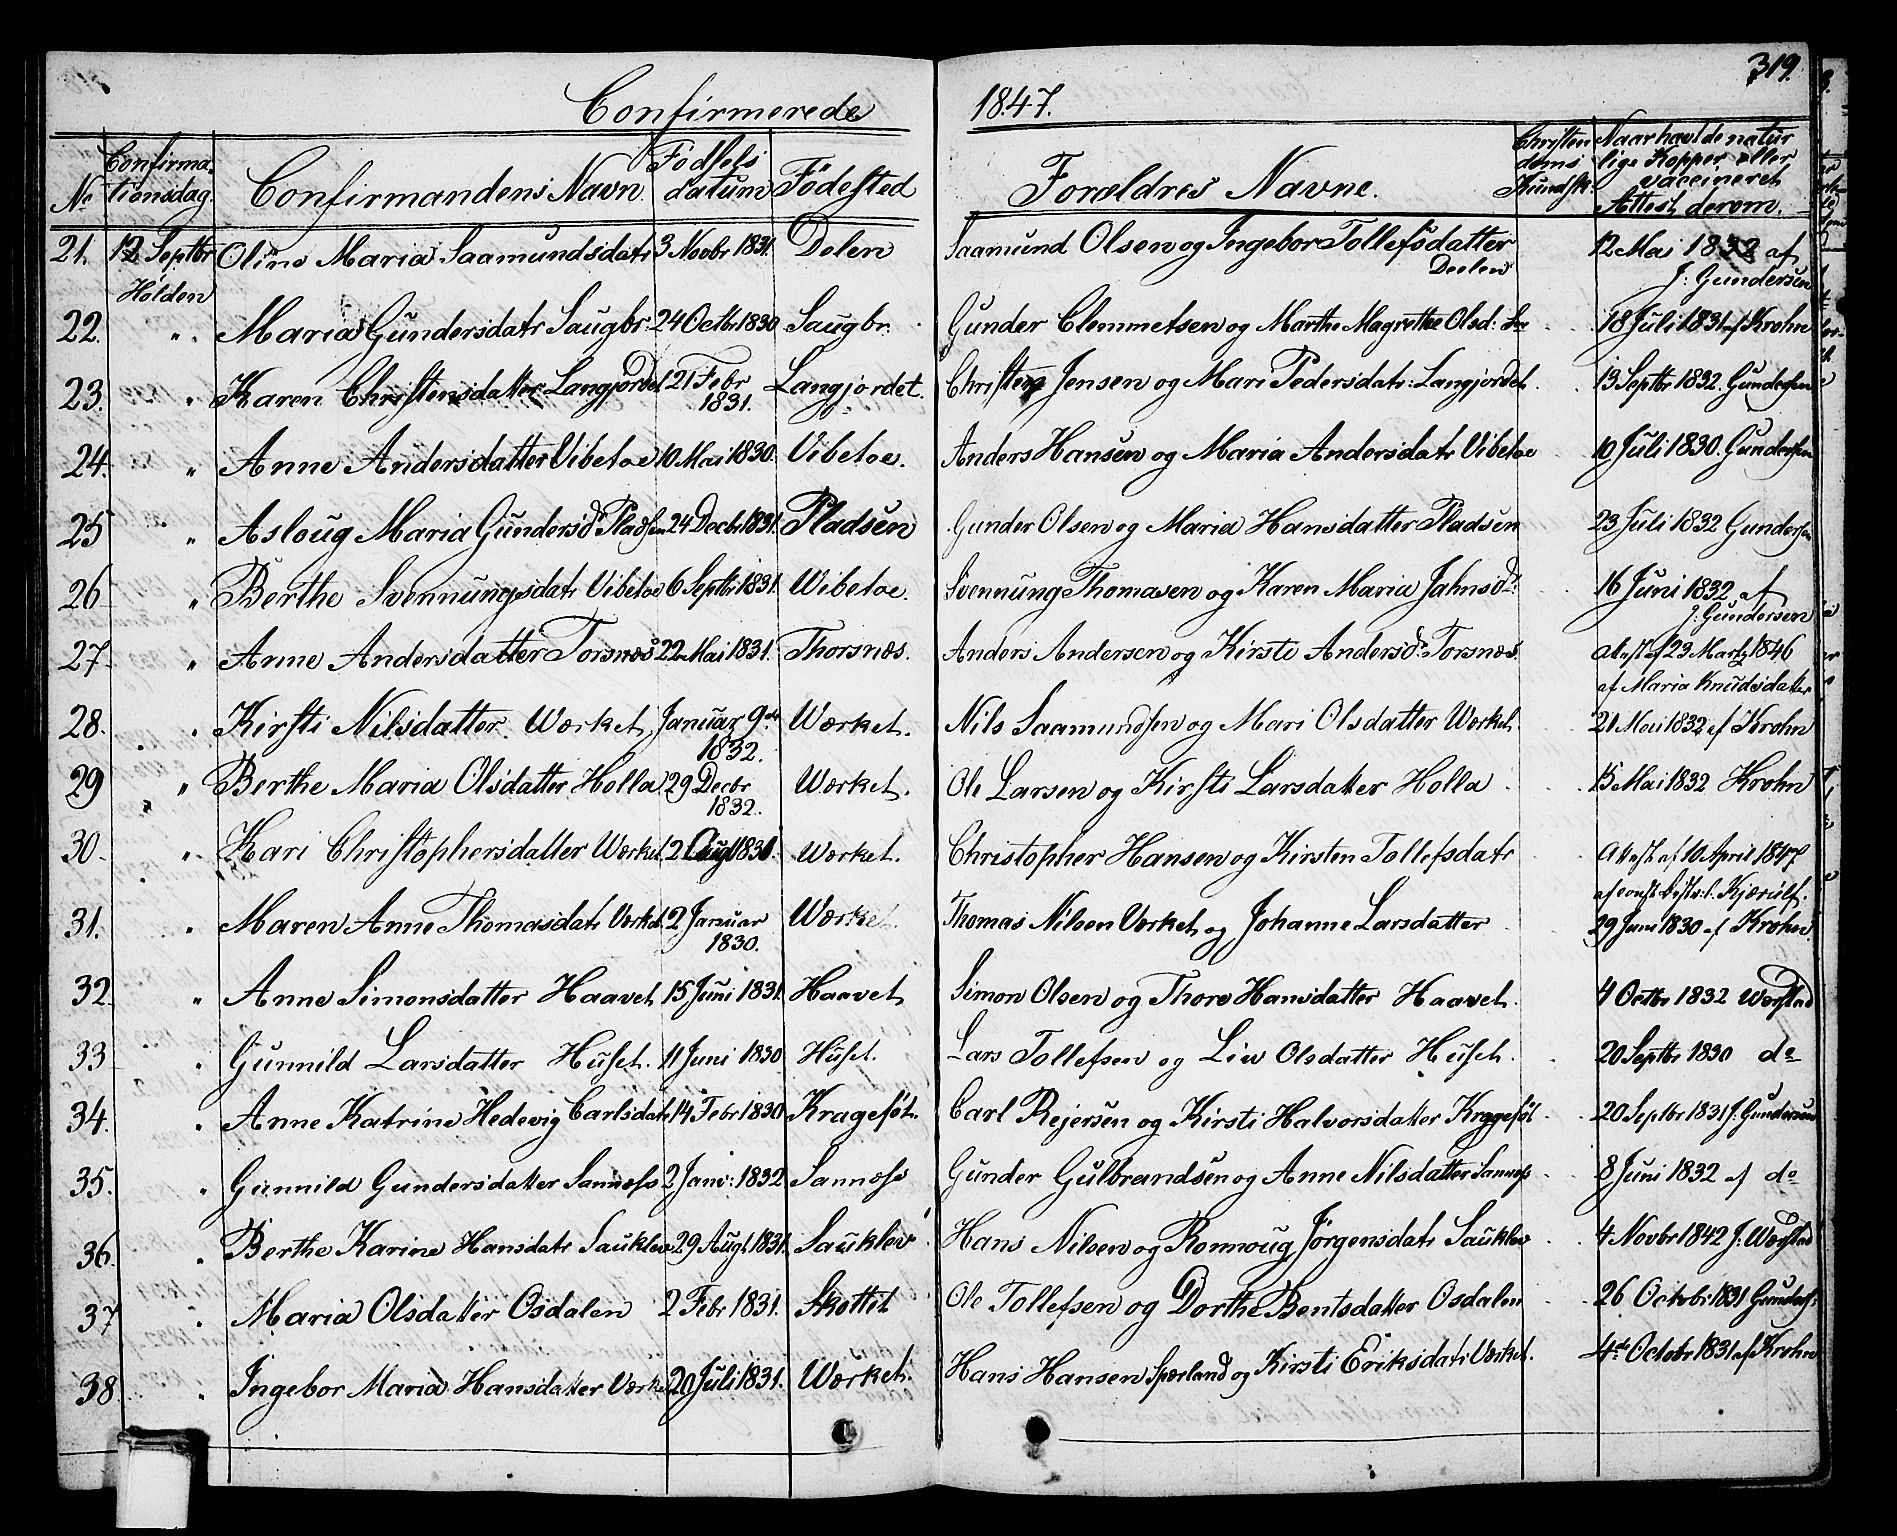 319.
Confirmerede 1847.
No Confirmationsdag. Confirmandens Navn. Fødsels datum Födested Forældres Navne. Christendoms Kundsk: Naar havt de natur lige Kopper eller vaccineret Attest derom.
21. 12 Septbr Holden Oline Maria Saamundsdatr 3 Novbr 1831. Delen Saamund Olsen og Ingebor Tollefsdatter Deelen 12 Mai 1832 af J: Gundersen
22. " Maria Gundersdatr Saugbr: 24 Octbr 1830 Saugbr. Gunder Clemmetsen og Marthe Magrethe Olsd: 18 Juli 1831 af Krohn
23. " Karen Christensdatter Langjordet 21 Febr 1831. Langjordet. Christen Jensen og Mari Pedersdatr: Langjordet 13 Septbr 1832. Gundersen
24. " Anne Andersdatter Vibetoe 10 Mai 1830. Vibetoe. Anders Hansen og Maria Andersdatr Vibetoe 10 Juli 1830. Gundersen
25 " Asloug Maria Gundersd: Pladsen 24 Decbr 1831. Pladsen Gunder Olsen og Maria Hansdatter Pladsen 23 Juli 1832 Gundersen
26 " Berthe Svennungsdatr Vibetoe 6 Septbr 1831. Wibetoe. Svennung Thomasen og Karen Maria Jahnsd: 16 Juni 1832 af J: Gundersen
27. " Anne Andersdatter Torsnæs 22 Mai 1831. Thorsnæs. Anders Andersen og Kirsti Andersd: Torsnæs. Attest af 23 Martz 1846 af Maria Knudsdatter
28. " Kirsti Nilsdatter. Værket, Januar 9de 1832. Værket. Nils Saamundsen og Mari Olsdatter Værket. 21 Mai 1832 af Krohn
29 " Berthe Maria Olsdatter Holla 29 Decbr 1832. Værket. Ole Larsen og Kirsti Larsdatter Holla 15 Mai 1832 Krohn
30. " Kari Christophersdatter Værket 2 Augt 1831. Værket. Christopher Hansen og Kirsten Tollefsdatr Attest af 10 April 1847 af const: Kjærulf.
31. " Maren Anne Thomasdatr Værket 2 Januar 1830. Værket. Thomas Nilsen Værket og Johanne Larsdatter 29 Juni 1830 af Krohn.
32. " Anne Simonsdatter Haavet 15 Juni 1831. Haavet Simon Olsen og Thore Hansdatter Haavet. 4 Octbr 1832 Værstad
33 " Gunnild Larsdatter Huset. 11 Juni 1830 Huset. Lars Tollefsen og Liv Olsdatter Huset. 20 Septbr 1830 do
34. " Anne Katrine Hedevig Carlsdatr 14 Febr 1830 Krageföt. Carl Rejersen og Kirsti Halvorsdatter Krageföt 20 Septbr 1831 J: Gundersen
35. " Gunnild Gundersdatter Sannæss 2 Janr: 1832 Sannæss Gunder Gulbrandsen og Anne Nilsdatter Sannæss 8 Juni 1832 af do
36. " Berthe Karine Hansdatr Sauklev 29 Augt 1831. Sauklev Hans Nilsen og Ronnoug Jörgensdatr Sauklev 4 Novbr 1842 J: Værstad
37 " Maria Olsdatter Osdalen 2 Febr 1831. Skottet Ole Tollefsen og Dorthe Bentsdatter Osdalen 26 Octobr 1831 Gunders:
38. " Ingebor Maria Hansdatter Værket 20 Juli 1831. Værket. Hans Hansen Spærland og Kirsti Eriksdatr Værket. 4de Octobr 1831 af Krohn